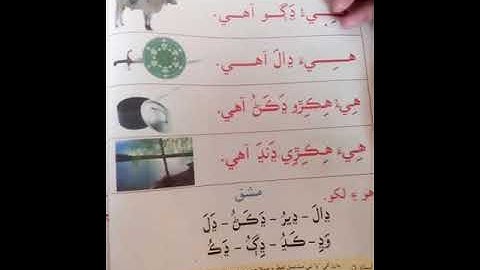 هِيءُ ڍَڳو آهي.
هِيءَ ڍالَ آهي.
هِيءُ هِڪِڙو ڍَڪَڻُ آهي.
هِيءَ هِڪِڙِي ڍَنڍَ آهي.
مشق
هو ۽ لکو.
ڍالَ – ڍيرُ – ڍَڪَڻُ – ڍَلَ
وَڍِ – ڪَڍُ – ڍِڳُ – ڍَڪُ